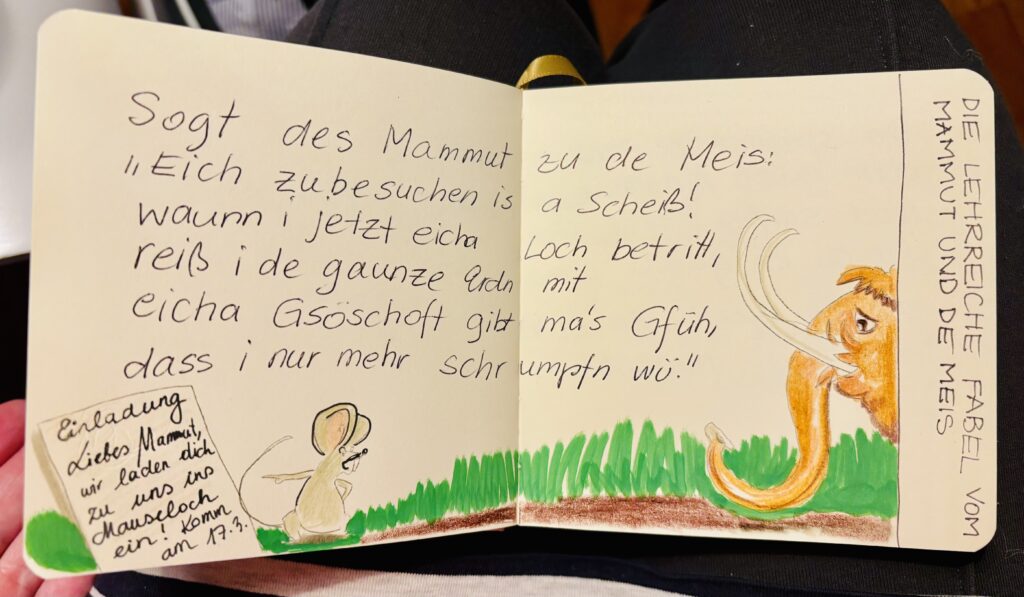 Sogt des Mammut zu de Meis:
„Eich zubesuchen is a Scheiß!
waunn i jetzt eicha Loch betritt,
reiß i de gaunze Erdn mit
eicha Gsöschoft gibt ma's Gfüh,
dass i nur mehr schrumpfn wü."
Einladung
Liebes Mammut,
wir laden dich
zu uns ins
Mauseloch
ein! Komm
am 17.3.
DIE LEHRREICHE FABEL VOM
MAMMUT UND DE MEIS